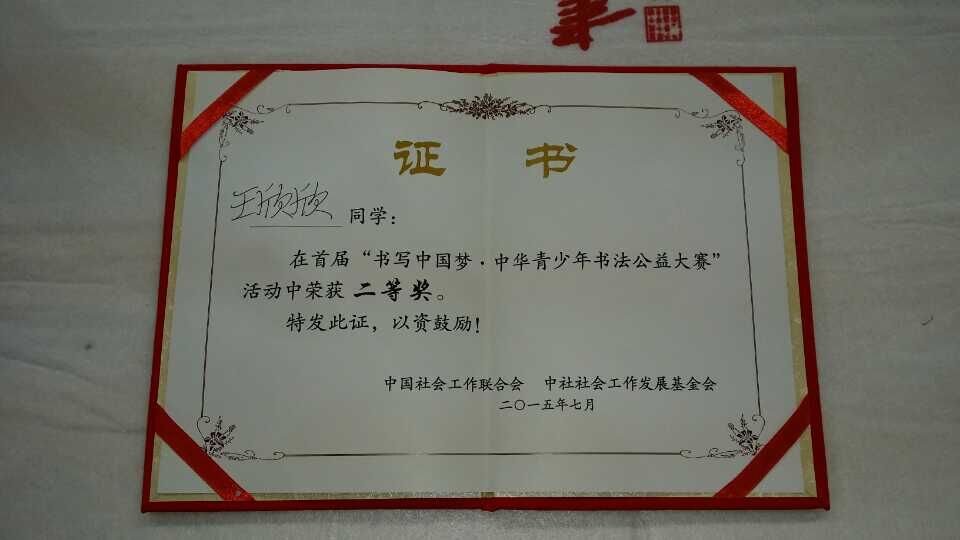 证 书
王欣欣 同学：
在首届“书写中国梦·中华青少年书法公益大赛”
活动中荣获 二等奖。
特发此证，以资鼓励！
中国社会工作联合会 中社社会工作发展基金会
二〇一五年七月